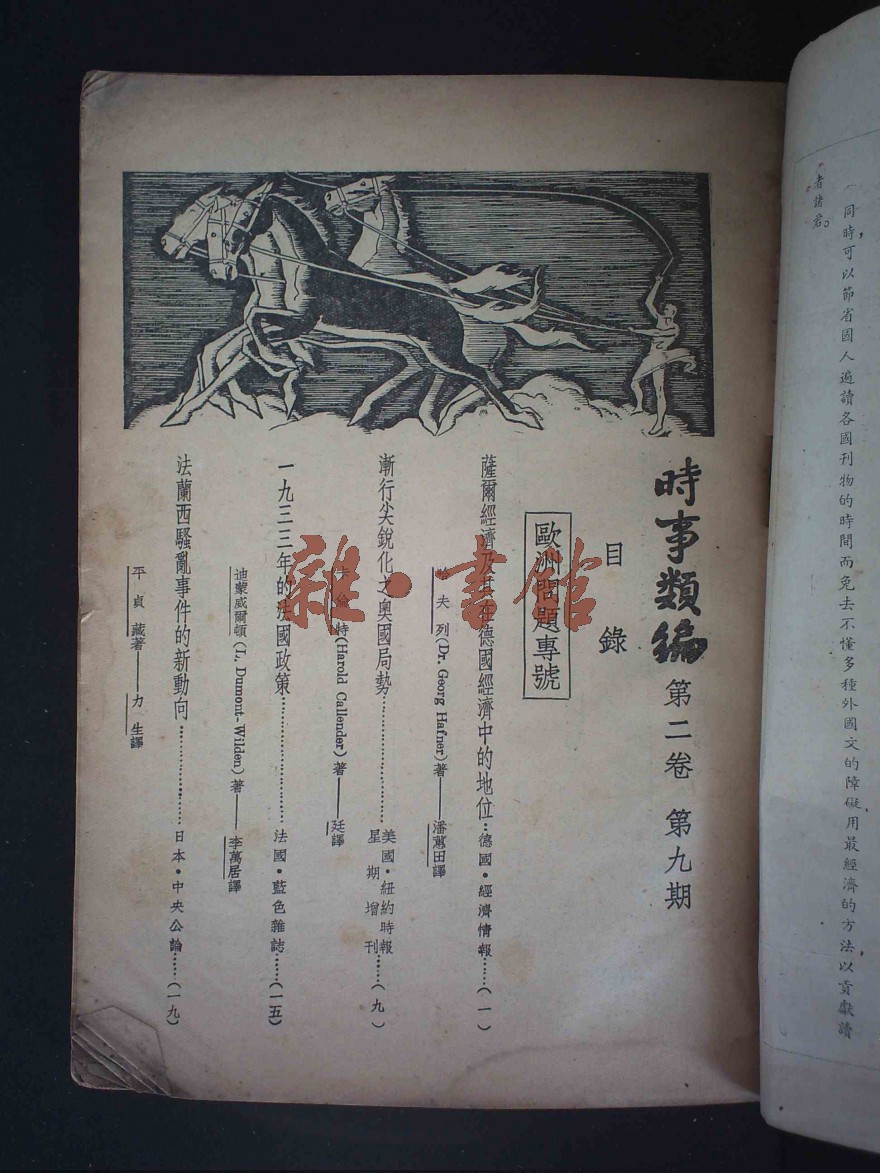 時事類編 第二卷 第九期
目錄
歐洲問題專號
薩爾經濟及其在德國經濟中的地位…德國•經濟情報……(一)
哈夫列(Dr. Georg Hafner)著——潘蕙田譯
漸行尖銳化之奧國局勢…………美國•紐約時報星期增刊(九)
卡倫特(Harold Callender)著——廷譯
一九三三年的法國政策…………法國•藍色雜誌……(一五)
迪蒙威爾頓(L. Dumont-Wilden)著——李萬居譯
法蘭西騷亂事件的新動向…………日本•中央公論……(一九)
平貞藏著——力生譯
同時可以節省國人遍讀各國刊物的時間而免去不懂多種外國文的障礙用最經濟的方法以貢獻讀
者諸君。
雜•書館